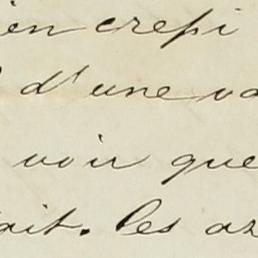 en crepi
d'une va
voir que
ait. les ar